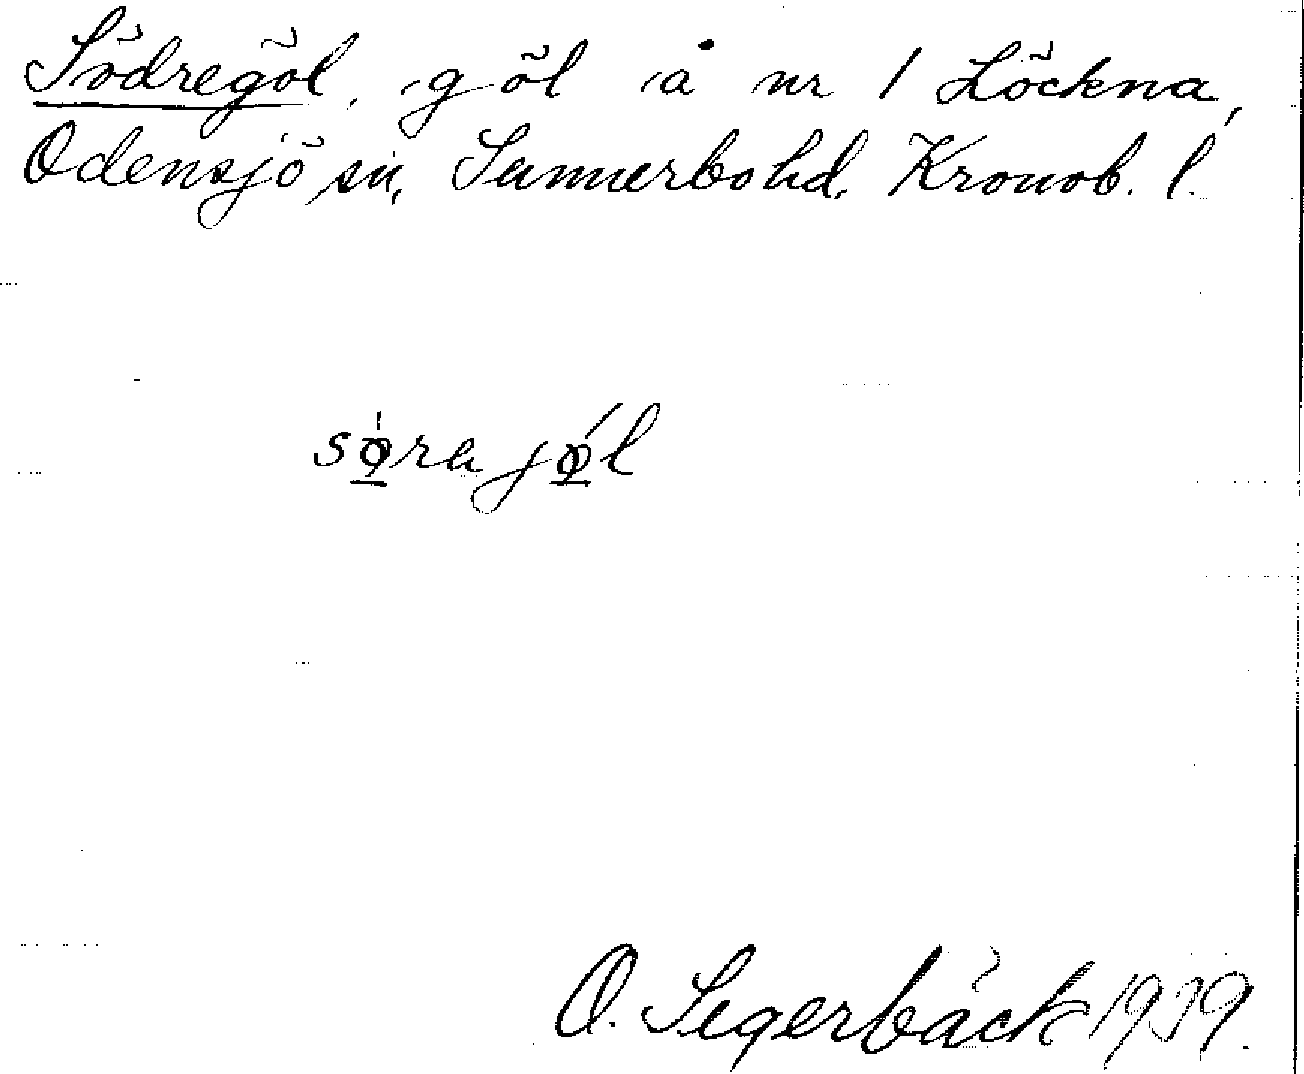 Södregöl, göl å nr 1 Löckna,
Odensjö sn, Sunnerbo hd, Kronob. l.
sø̱̍ra jǿ̱l
O. Segerbäck 1939.